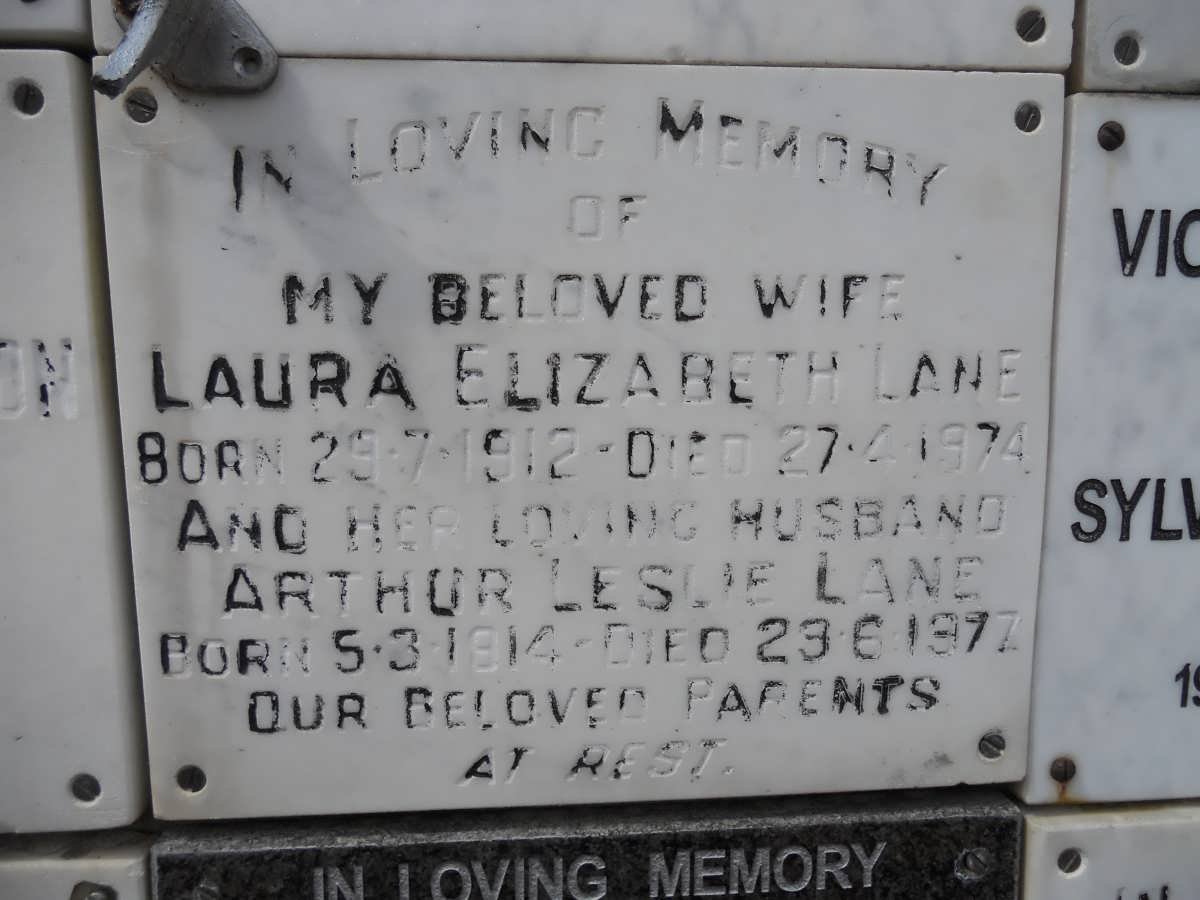 IN LOVING MEMORY
OF
MY BELOVED WIFE
LAURA ELIZABETH LANE
BORN 29·7·1912 - DIED 27·4·1974
AND HER LOVING HUSBAND
ARTHUR LESLIE LANE
BORN 5·3·1914 - DIED 29·6·1977
OUR BELOVED PARENTS
AT REST.
ON
VIC
SYLV
19
IN LOVING MEMORY